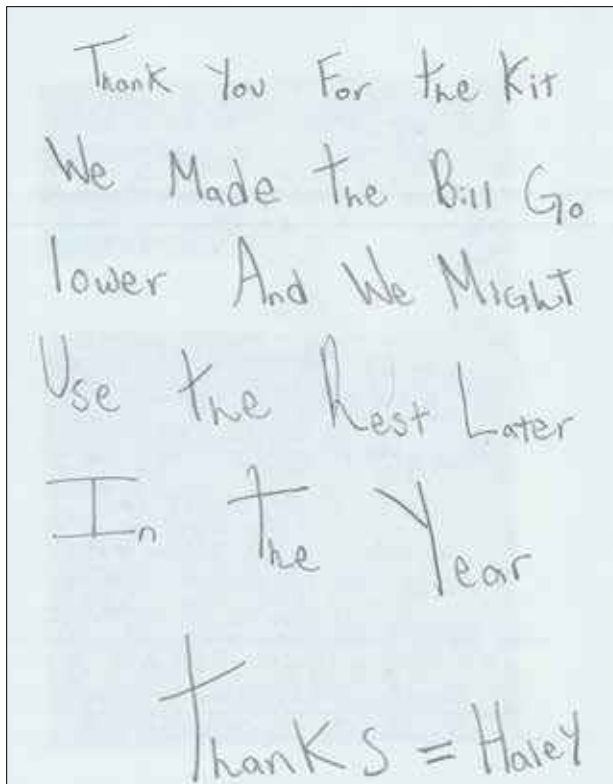 Thank You For the Kit
We Made the Bill Go
lower And We Might
Use the Rest Later
In the Year
thanks = Haley